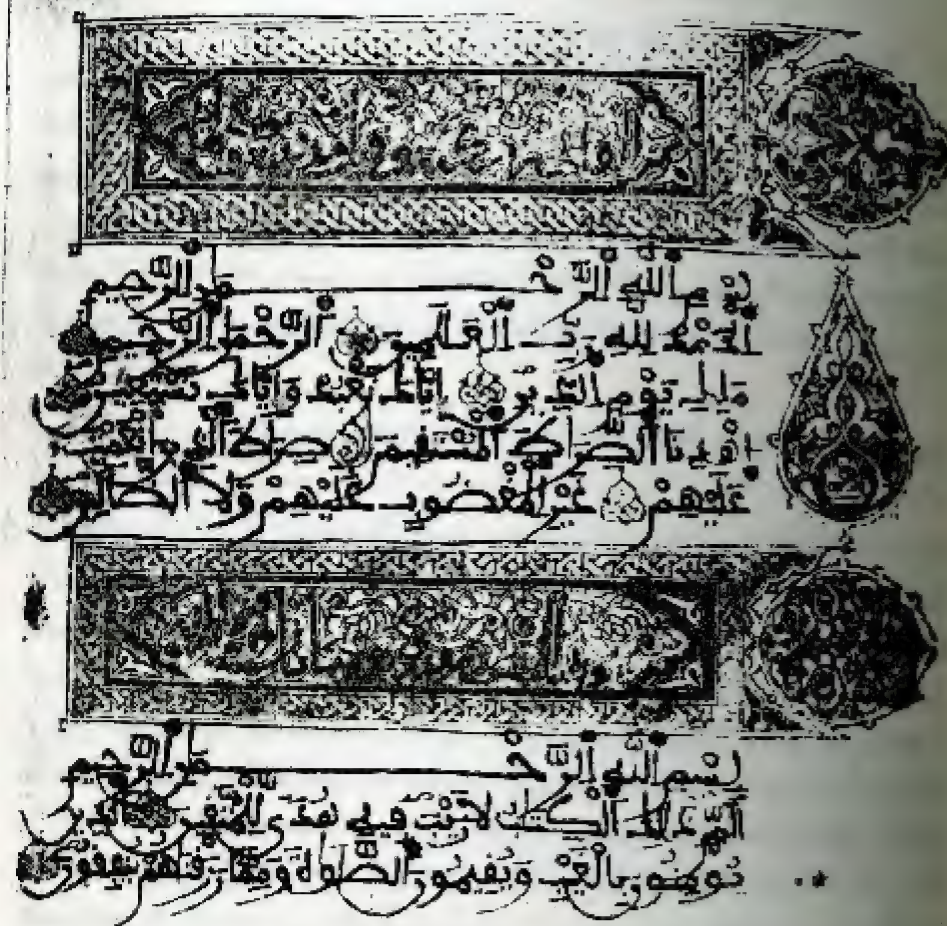 بِسْمِ اللَّهِ الرَّحْمَٰنِ الرَّحِيمِ
الْحَمْدُ لِلَّهِ رَبِّ الْعَٰلَمِينَ الرَّحْمَٰنِ الرَّحِيمِ
مَلِكِ يَوْمِ الدِّينِ إِيَّاكَ نَعْبُدُ وَإِيَّاكَ نَسْتَعِينُ
اهْدِنَا الصِّرَاطَ الْمُسْتَقِيمَ صِرَاطَ الَّذِينَ أَنْعَمْتَ
عَلَيْهِمْ غَيْرِ الْمَغْضُوبِ عَلَيْهِمْ وَلَا الضَّالِّينَ
بِسْمِ اللَّهِ الرَّحْمَٰنِ الرَّحِيمِ
الٓمّٓ ذَٰلِكَ الْكِتَٰبُ لَا رَيْبَ فِيهِ هُدًى لِّلْمُتَّقِينَ الَّذِينَ
يُومِنُونَ بِالْغَيْبِ وَيُقِيمُونَ الصَّلَوٰةَ وَمِمَّا رَزَقْنَٰهُمْ يُنفِقُونَ